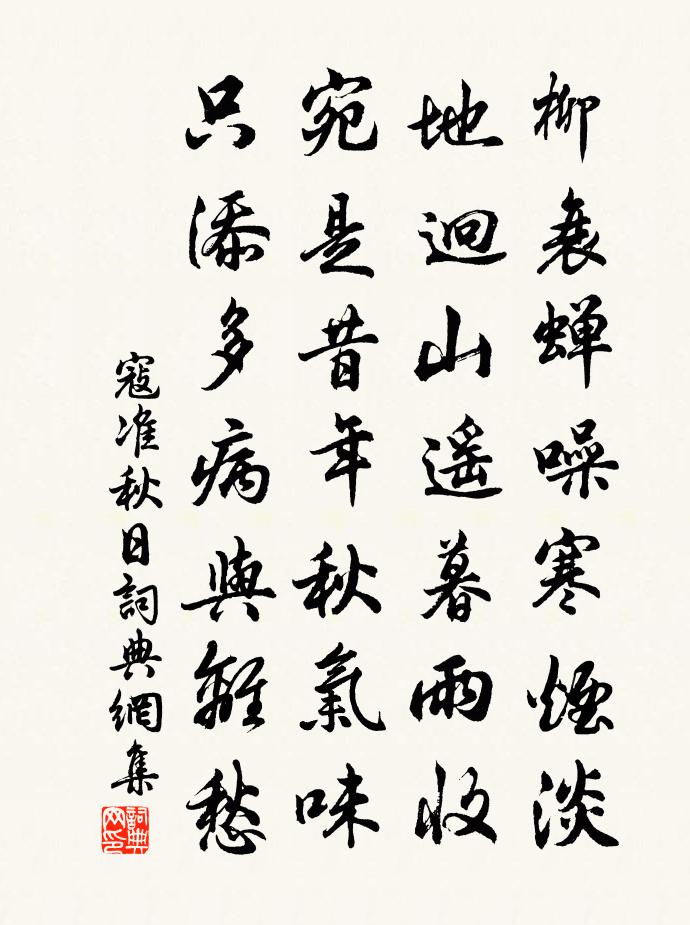 柳衰蟬噪寒煙淡
地迥山遥暮雨收
宛是昔年秋氣味
只添多病與離愁
寇准秋日詞典網集
詞典网印